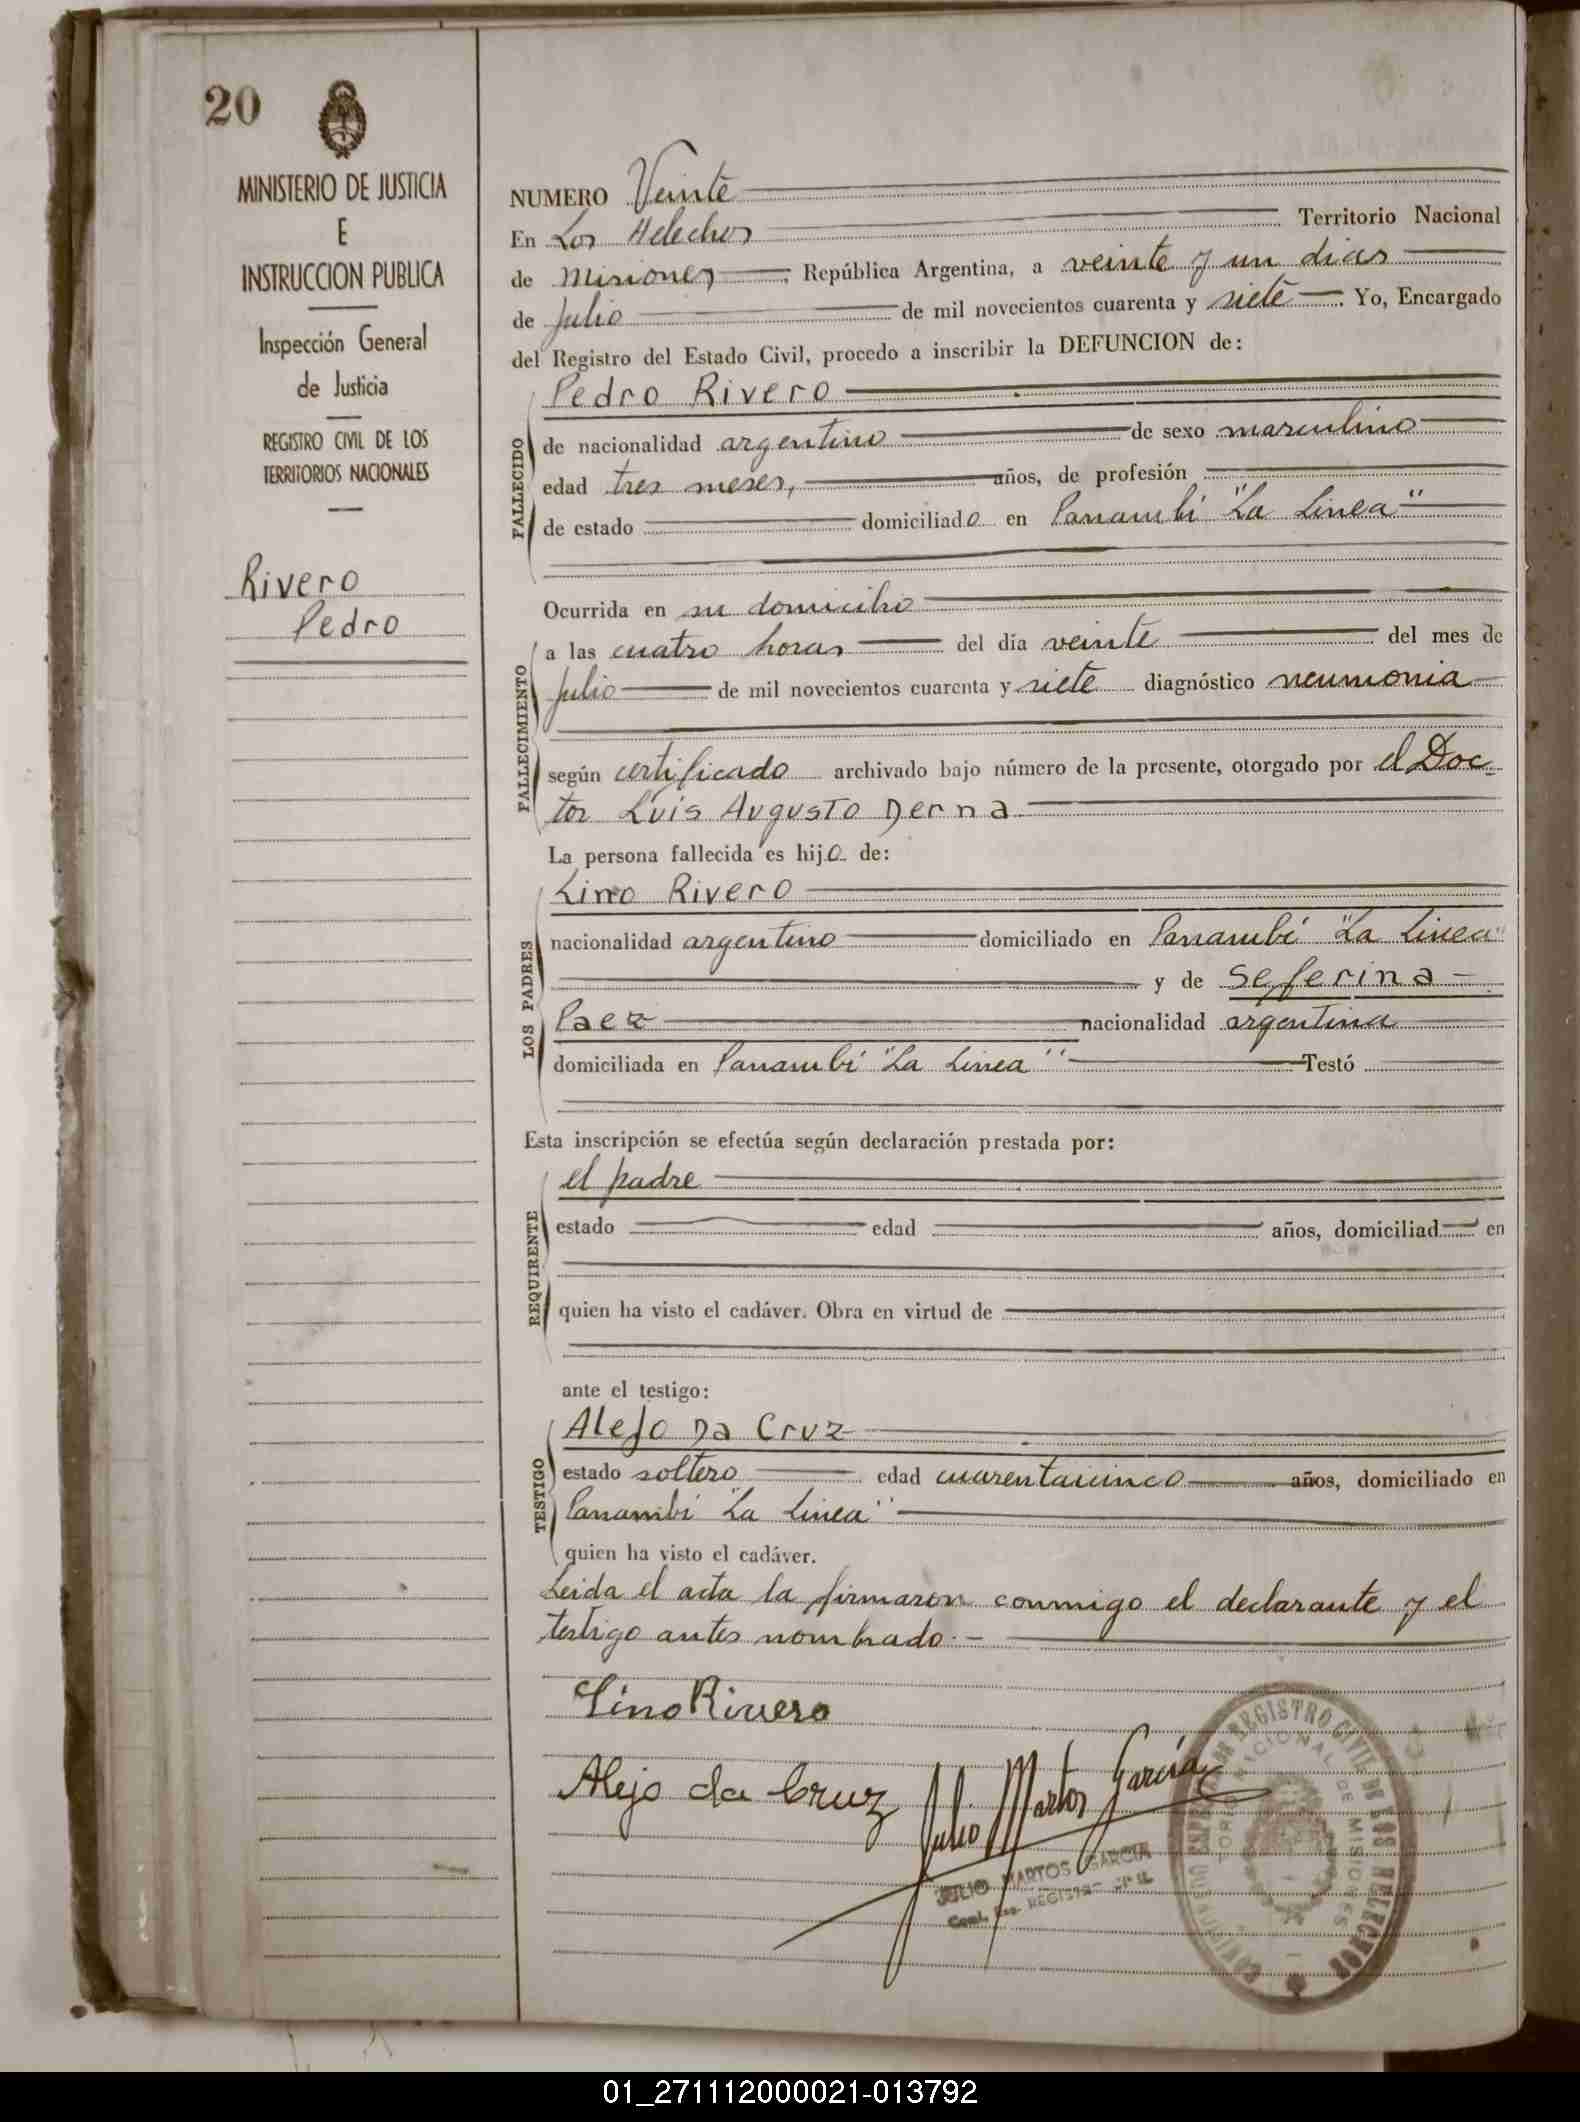 20
MINISTERIO DE JUSTICIA
E
INSTRUCCION PUBLICA
Inspección General
de Justicia
REGISTRO CIVIL DE LOS
TERRITORIOS NACIONALES
Rivero
Pedro
NUMERO Veinte
En Los Helechos Territorio Nacional
de Misiones, República Argentina, a veinte y un dias
de Julio de mil novecientos cuarenta y siete. Yo, Encargado
del Registro del Estado Civil, procedo a inscribir la DEFUNCION de:
FALLECIDO
Pedro Rivero
de nacionalidad argentino de sexo masculino
edad tres meses, años, de profesión
de estado domiciliado en Panambí "La Linea"
Ocurrida en su domicilio
FALLECIMIENTO
a las cuatro horas del día veinte del mes de
Julio de mil novecientos cuarenta y siete diagnóstico neumonia
según certificado archivado bajo número de la presente, otorgado por el Doc-
tor Luis Augusto Derna
La persona fallecida es hijo de:
LOS PADRES
Lino Rivero
nacionalidad argentino domiciliado en Panambí "La Linea"
y de Seferina
Paez nacionalidad argentina
domiciliada en Panambí "La Linea" Testó
Esta inscripción se efectúa según declaración prestada por:
REQUIRENTE
el padre
estado edad años, domiciliad en
quien ha visto el cadáver. Obra en virtud de
ante el testigo:
TESTIGO
Alejo Da Cruz
estado soltero edad cuarentaicinco años, domiciliado en
Panambí "La Linea"
quien ha visto el cadáver.
Leida el acta la firmaron conmigo el declarante y el
testigo antes nombrado.-
Lino Rivero
Alejo da Cruz
Julio Martos García
JULIO MARTOS GARCIA
REGISTRO CIVIL DE LOS HELECHOS
NACIONAL DE MISIONES
01_271112000021-013792